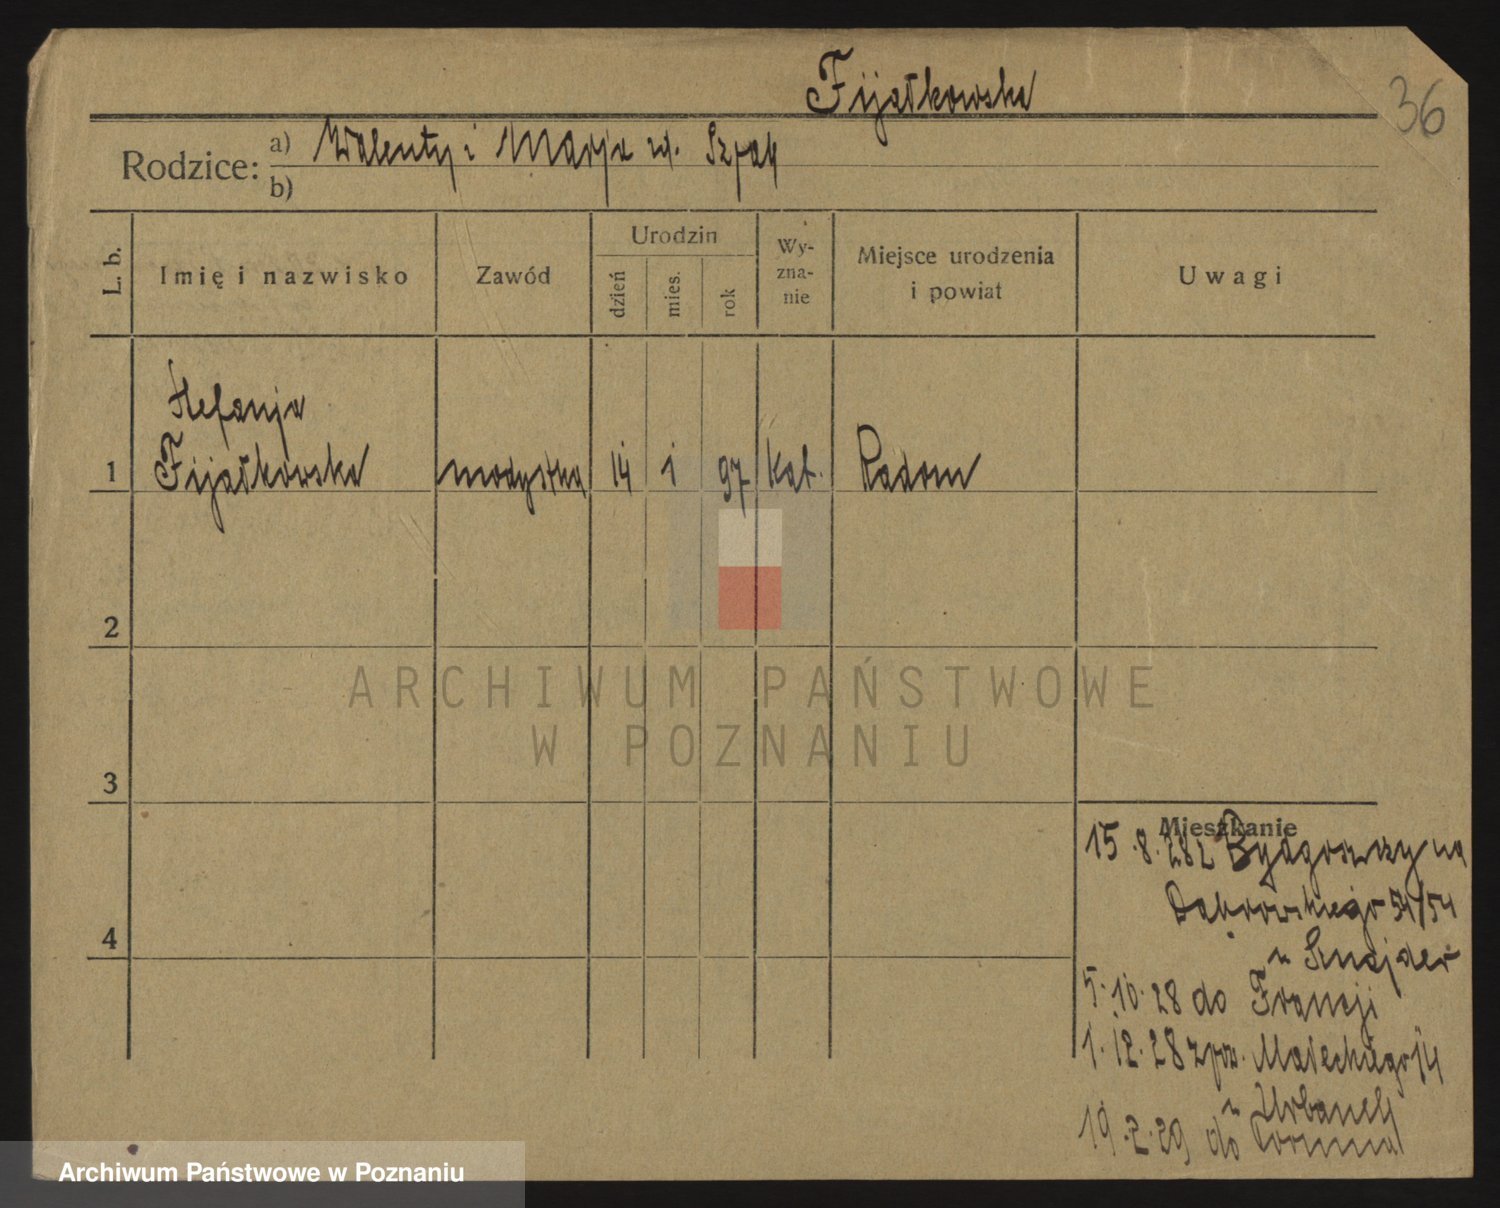 Fijałkowska
36
Rodzice: a) Walenty i Marja zd. Szpak
b)
L. b.
Imię i nazwisko
Zawód
Urodzin
dzień
mies.
rok
Wy-
zna-
nie
Miejsce urodzenia
i powiat
Uwagi
Stefanja
1 Fijałkowska modystka 14 1 97 kat. Radom
2
ARCHIWUM PAŃSTWOWE
W POZNANIU
3
Mieszkanie
15.8.28 z Bydgoszczy na
Dąbrowskiego 54/54
u Snajder
4
5.10.28 do Francji
1.12.28 z pow. Małeckiego 14
u Urbanek
19.2.29 do
Archiwum Państwowe w Poznaniu